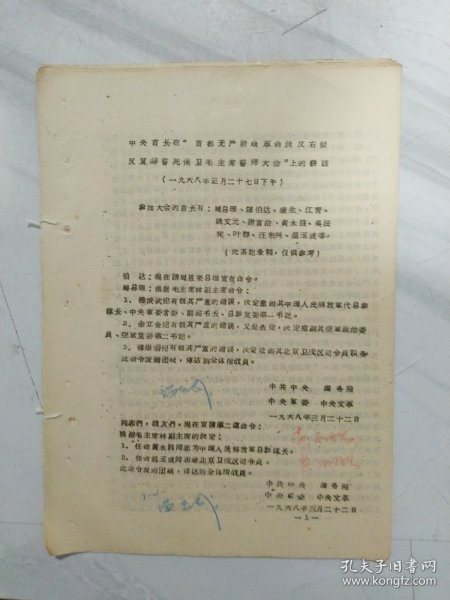 中央首长在“首都无产阶级革命派反右倾
反复辟誓死保卫毛主席誓师大会”上的讲话
（一九六八年三月二十七日下午）
参加大会的首长有：周总理、陈伯达、康生、江青、
姚文元、谢富治、黄永胜、吴法
宪、叶群、汪东兴、温玉成等。
（此系记录稿，仅供参考）
伯达：现在请周恩来总理宣布命令。
周总理：根据毛主席林副主席命令：
1、杨成武犯有极其严重的错误，决定撤销其中国人民解放军代总参
谋长、中央军委常委、副秘书长、总参党委第一书记。
2、余立金犯有极其严重的错误，又是叛徒，决定撤销其空军政治委
员、空军党委第二书记。
3、傅崇碧犯有极其严重的错误，决定撤销其北京卫戍区司令员职务
此命令发到团级，传达到全体指战员。
中共中央 国务院
中央军委 中央文革
一九六八年三月二十二日
同志们，战友们，现在宣读第二道命令：
根据毛主席林副主席的决定：
1、任命黄永胜同志为中国人民解放军总参谋长。
2、任命温玉成同志兼北京卫戍区司令员。
此命令发到团级，传达到全体指战员。
中共中央 国务院
中央军委 中央文革
一九六八年三月二十二日
—1—
孔夫子旧书网
www.kongfz.com